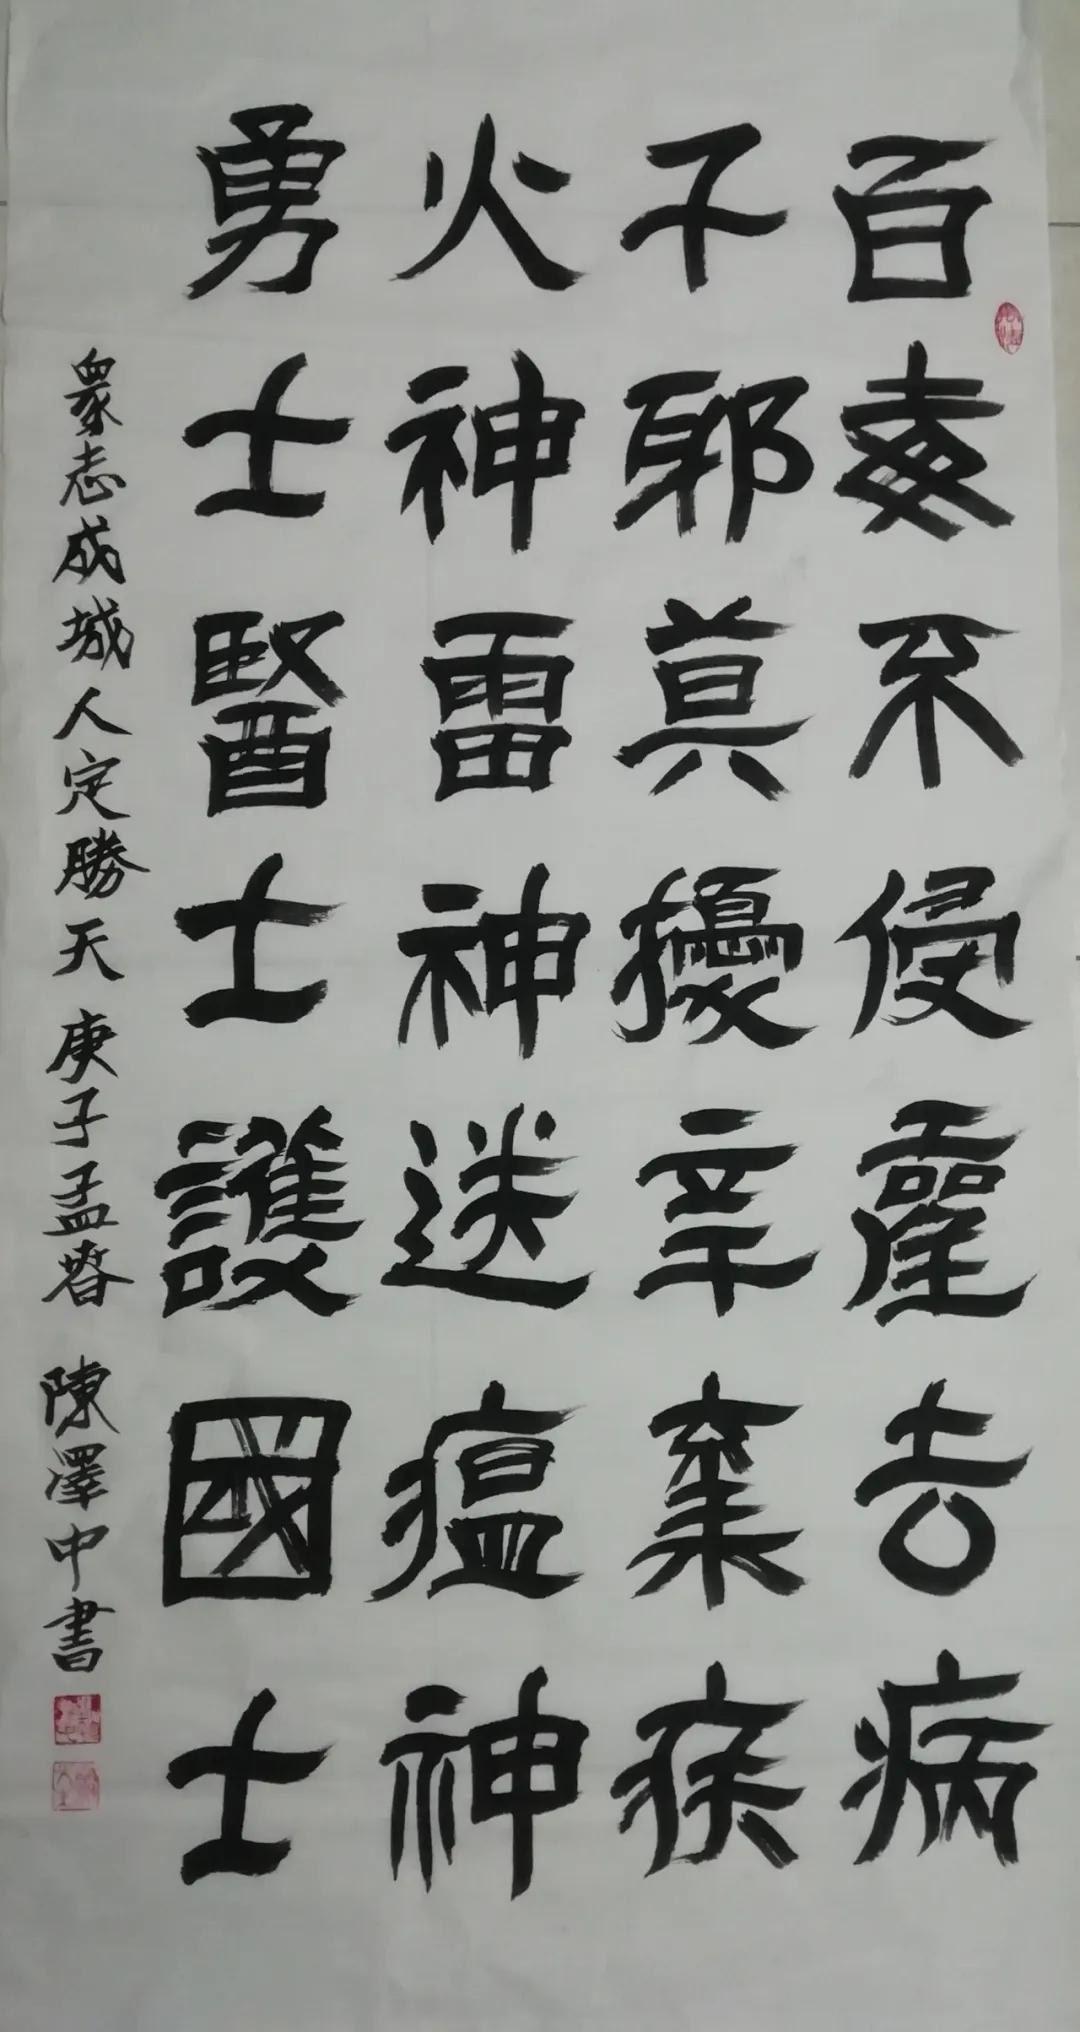 百毒不侵霍去病
千邪莫擾辛棄疾
火神雷神送瘟神
勇士醫士護國士
眾志成城人定勝天 庚子孟春 陳澤中書